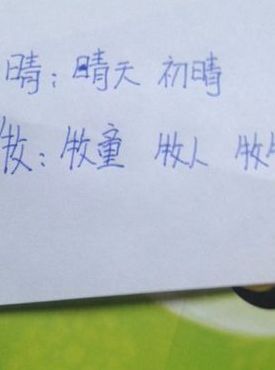 晴：晴天 初晴
牧：牧童 牧人 牧